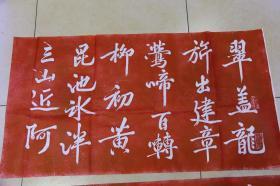 翠盖龙
旂出建章
莺啼百啭
柳初黄
昆池冰泮
三山近阿